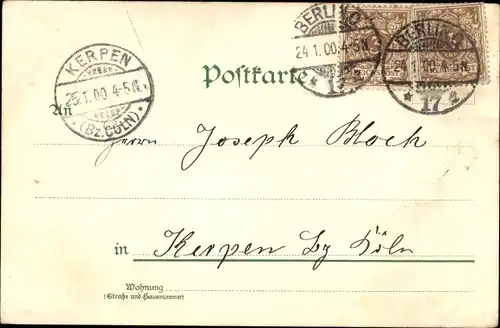 BERLIN C.
24 1.00.4-5N.
* 17 a
BERLIN C.
24 1.00.4-5N.
* 17 a
KERPEN
25.1.00 4-5N.
(Bz.CÖLN).
Postkarte
An
Herrn Joseph Bloch
in Kerpen bz Köln
Wohnung
(Straße und Hausnummer)